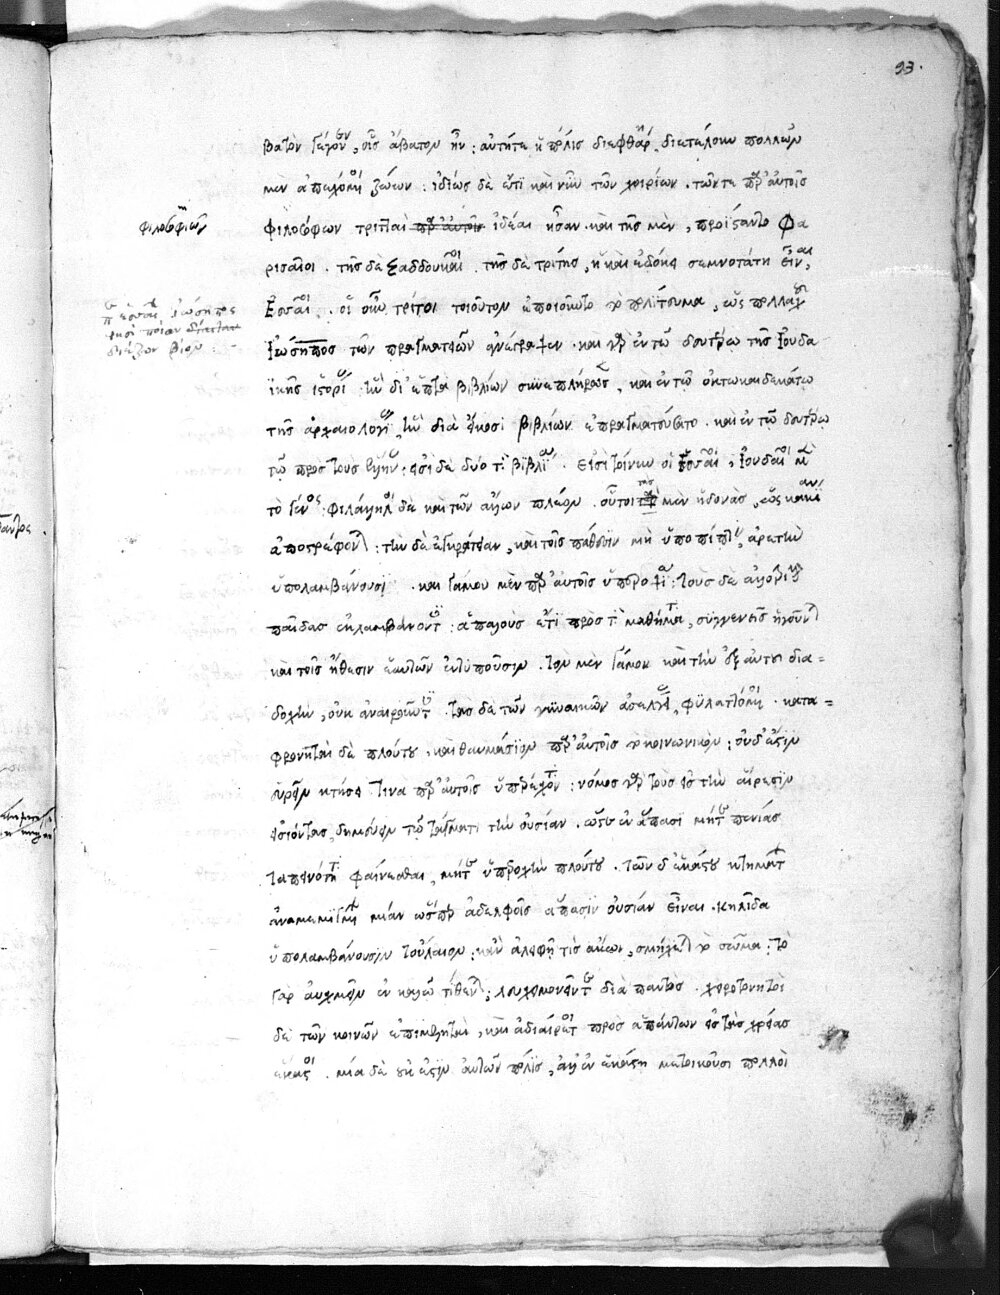 93.
βατὸν γεγονὸς, οἷς ἄβατον ἦν: αὐτήτε ἡ πόλις διεφθάρη, διετέλουν πολλῶν
μὲν ἀπεχόμενοι ζώων: ἰδίως δὲ ἔτι καὶ νῦν τῶν χοιρίων. τῶν τε παρ' αὐτοῖς
φιλοσόφων
φιλοσόφων τριτταὶ παρ' αὐτοῖς ἰδέαι ἦσαν. καὶ τῆς μὲν, προΐσταντο Φα
ρισαῖοι. τῆς δὲ Σαδδουκαῖοι. τῆς δὲ τρίτης, ἣ καὶ ἐδόκει σεμνοτάτη εἶναι,
Ἐσσαῖοι. οἱ οὖν τρίτοι τοιοῦτον ἐποιοῦντο τὸ πολίτευμα, ὡς πολλαχοῦ
Ἰώσηπος τῶν πραγματειῶν ἀνέγραψεν. καὶ γὰρ ἐν τῷ δευτέρῳ τῆς Ἰουδα
ἰκῆς ἱστορίας, ἣν δι' ἑπτὰ βιβλίων συνεπλήρωσεν, καὶ ἐν τῷ ὀκτωκαιδεκάτῳ
τῆς ἀρχαιολογίας, ἣν διὰ εἴκοσι βιβλίων ἐπραγματεύσατο. καὶ ἐν τῷ δευτέρῳ
τῷ πρὸς τοὺς Ἕλληνας: εἰσὶ δὲ δύο τὰ βιβλία. Εἰσὶ τοίνυν οἱ Ἐσσαῖοι, Ἰουδαῖοι μὲν
τὸ γένος: φιλάλληλοι δὲ καὶ τῶν ἄλλων πλέον. οὗτοι τὰς μὲν ἡδονὰς, ὡς κακίαν
ἀποστρέφονται: τὴν δὲ ἐγκράτειαν, καὶ τοῖς πάθεσιν μὴ ὑποπίπτειν, ἀρετὴν
ὑπολαμβάνουσι. καὶ γάμου μὲν παρ' αὐτοῖς ὑπεροψία: τοὺς δὲ ἀλλοτρίους
παῖδας ἐκλαμβάνοντες: ἁπαλοὺς ἔτι πρὸς τὰ μαθήματα, συγγενεῖς ἡγοῦνται
καὶ τοῖς ἤθεσιν ἑαυτῶν ἐντυποῦσιν. τὸν μὲν γάμον καὶ τὴν ἐξ αὐτοῦ δια=
δοχὴν, οὐκ ἀναιροῦντες. τὰς δὲ τῶν γυναικῶν ἀσελγείας, φυλαττόμενοι. κατα=
φρονηταὶ δὲ πλούτου. καὶ θαυμάσιον παρ' αὐτοῖς τὸ κοινωνικόν: οὐδ' ἔστιν
εὑρεῖν κτήσει τινα παρ' αὐτοῖς ὑπερέχοντα: νόμος γὰρ τοὺς εἰς τὴν αἵρεσιν
εἰσιόντας, δημεύειν τῷ τάγματι τὴν οὐσίαν. ὥστε ἐν ἅπασι μήτε πενίας
ταπεινότητα φαίνεσθαι, μήτε ὑπεροχὴν πλούτου. τῶν δ' ἑκάστου κτημάτων
ἀναμεμιγμένων μίαν ὥσπερ ἀδελφοῖς ἅπασιν οὐσίαν εἶναι. κηλίδα
ὑπολαμβάνουσιν τοὔλαιον: κἂν ἀλειφῇ τις ἄκων, σμήχεται τὸ σῶμα: τὸ
γὰρ αὐχμεῖν ἐν καλῷ τίθενται, λευχειμονεῖν τε διὰ παντός. χειροτονητοὶ
δὲ τῶν κοινῶν ἐπιμεληταὶ, καὶ ἀδιαίρετοι πρὸς ἁπάντων εἰς τὰς χρείας
ἕκαστοι. μία δὲ οὐκ ἔστιν αὐτῶν πόλις, ἀλλ' ἐν ἑκάστῃ μετοικοῦσι πολλοὶ